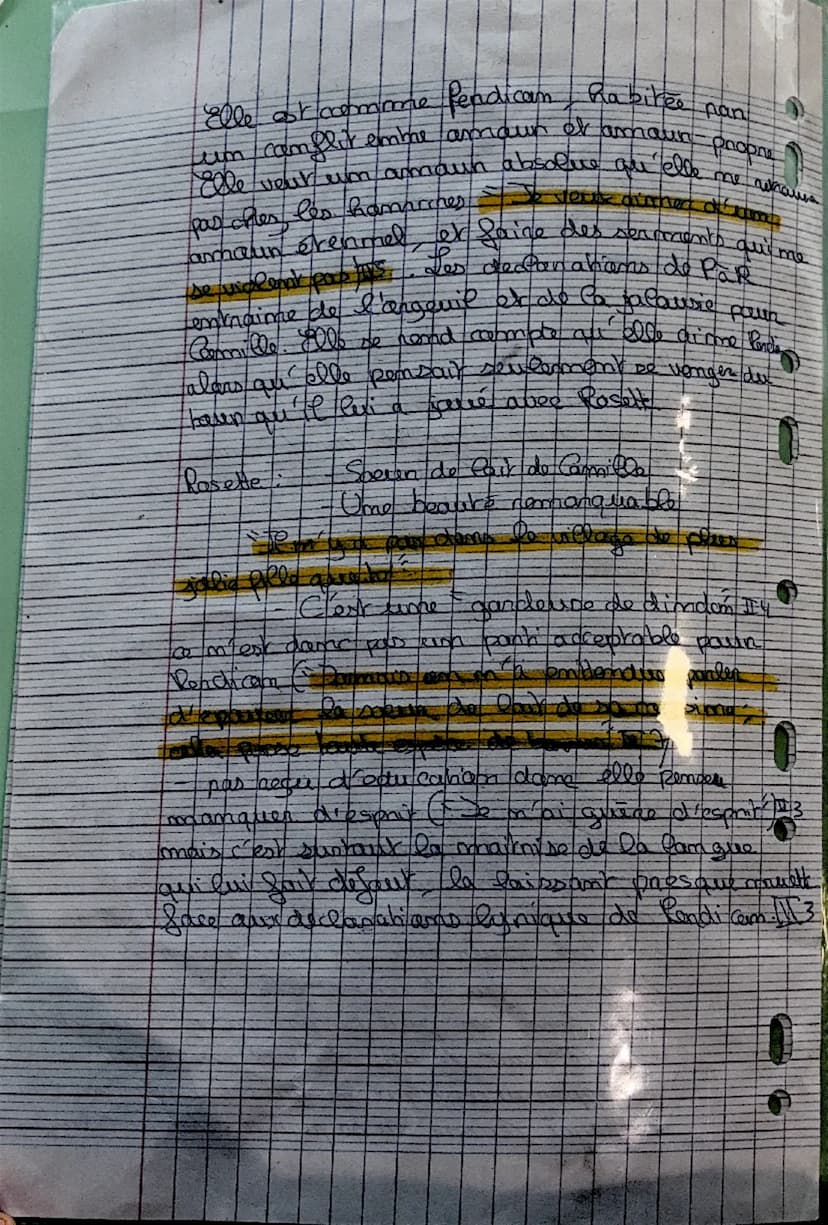 Elle est comme Perdican, habitée par
un conflit entre amour et amour-propre
Elle veut un amour absolue qu'elle ne
pas chez les hommes. "Je veux aimer d'un
amour éternel, et faire des serments qui ne
se violent pas". Les declarations de P à R
entraine de l'orgueil et de la jalousie pour
Camille. Elle se rend compte qu'elle aime Perdi
alors qu'elle pensait seulement se venger du
qu'il lui a joué avec Rosett
Rosette : - Soeur de lait de Camille
- Une beauté remarquable
"Il n'y a pas dans le village de plus
jolie que"
- C'est une "gardeuse de dindon" II 4
ce n'est donc pas un parti acceptable pour
Perdican ("Jamais on n'a entendu parler
d'épouser la soeur de lait de sa
cela passe toute espèce de"
- pas reçu d'education donc elle
manquer d'esprit ("Je n'ai guère d'esprit") III 3
mais c'est surtout la maitrise de la langue
qui lui fait défaut, la laissant presque muette
face aux declarations lyrique de Perdican. III 3